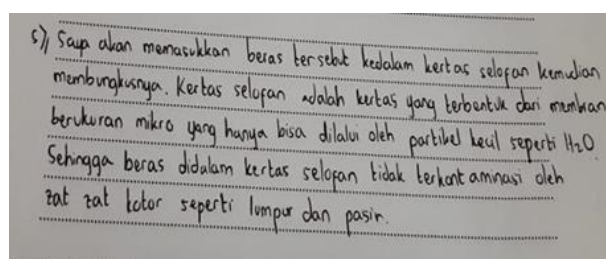 5) Saya akan memasukkan beras tersebut kedalam kertas selofan kemudian
membungkusnya. Kertas selofan adalah kertas yang terbentuk dari membran
berukuran mikro yang hanya bisa dilalui oleh partikel kecil seperti H2O
Sehingga beras didalam kertas selofan tidak terkontaminasi oleh
zat zat kotor seperti lumpur dan pasir.